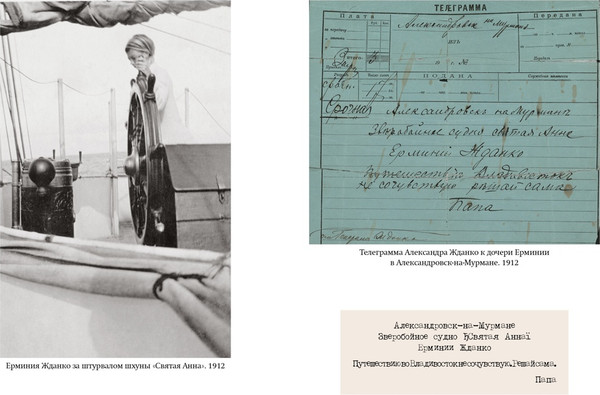 Ерминия Жданко за штурвалом шхуны «Святая Анна». 1912
ТЕЛЕГРАММА
Плата
Передана
Александровск на Мурмане
ПОДАНА
Срочная Александровскъ на Мурманѣ
Зверобойное судно святая Анне
Ерминіи Жданко
Путешествію Владивостокъ
не сочувствую рѣшай сама
Папа
Телеграмма Александра Жданко к дочери Ерминии
в Александровск-на-Мурмане. 1912
Александровск-на-Мурмане
Зверобойное судно ЂСвятая Аннаї
Ерминии Жданко
ПутешествиювоВладивостокнесочувствую.Решайсама.
Папа